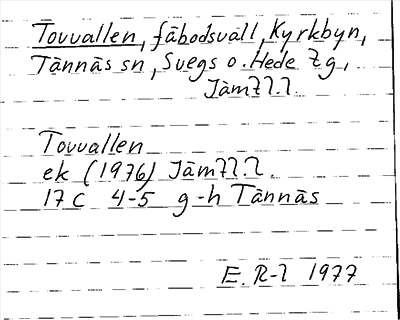 Tovvallen, fäbodsvall, Kyrkbyn,
Tännäs sn, Svegs o. Hede tg,
Jämtl.l.
Tovvallen
ek (1976) Jämtl.l.
17 C 4-5 g-h Tännäs
E. R-l 1977